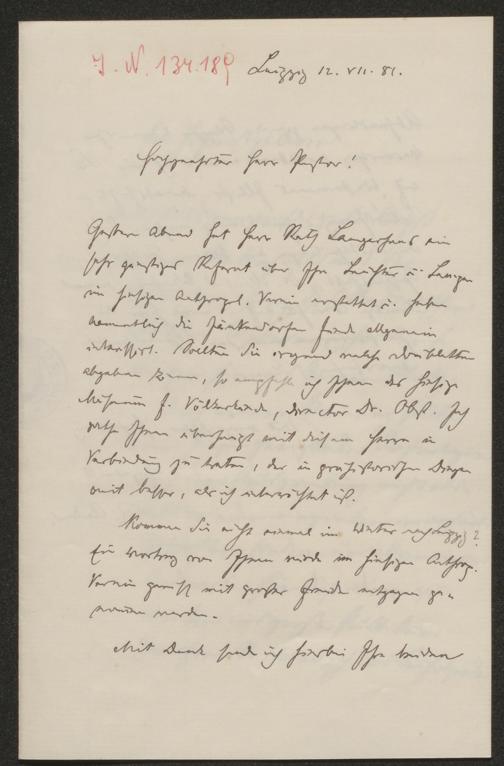 J. N. 134.189
Leipzig 12. VII. 81.
Hochgeehrter Herr Pastor!
Gestern Abend hat Herr Langerhans ein
sehr günstiges Referat über Ihre u. Lanzen
im hiesigen Anthropol. Verein erstattet u. haben
namentlich die Funde allgemein
interessirt. Sollten Sie irgend welche Doubletten
abgeben können, so empfehle ich Ihnen das hiesige
Museum f. Völkerkunde, Director Dr. Obst. Ich
rathe Ihnen überhaupt mit diesem Herrn in
Verbindung zu treten, der in prähistorischen Dingen
weit besser, als ich unterrichtet ist.
Kommen Sie nicht einmal im Winter nach Leipzig?
Ein Vortrag von Ihnen würde im hiesigen Anthrop.
Verein gewiss mit grosser Freude entgegen ge-
nommen werden.
Mit Dank sende ich hierbei Ihre beiden